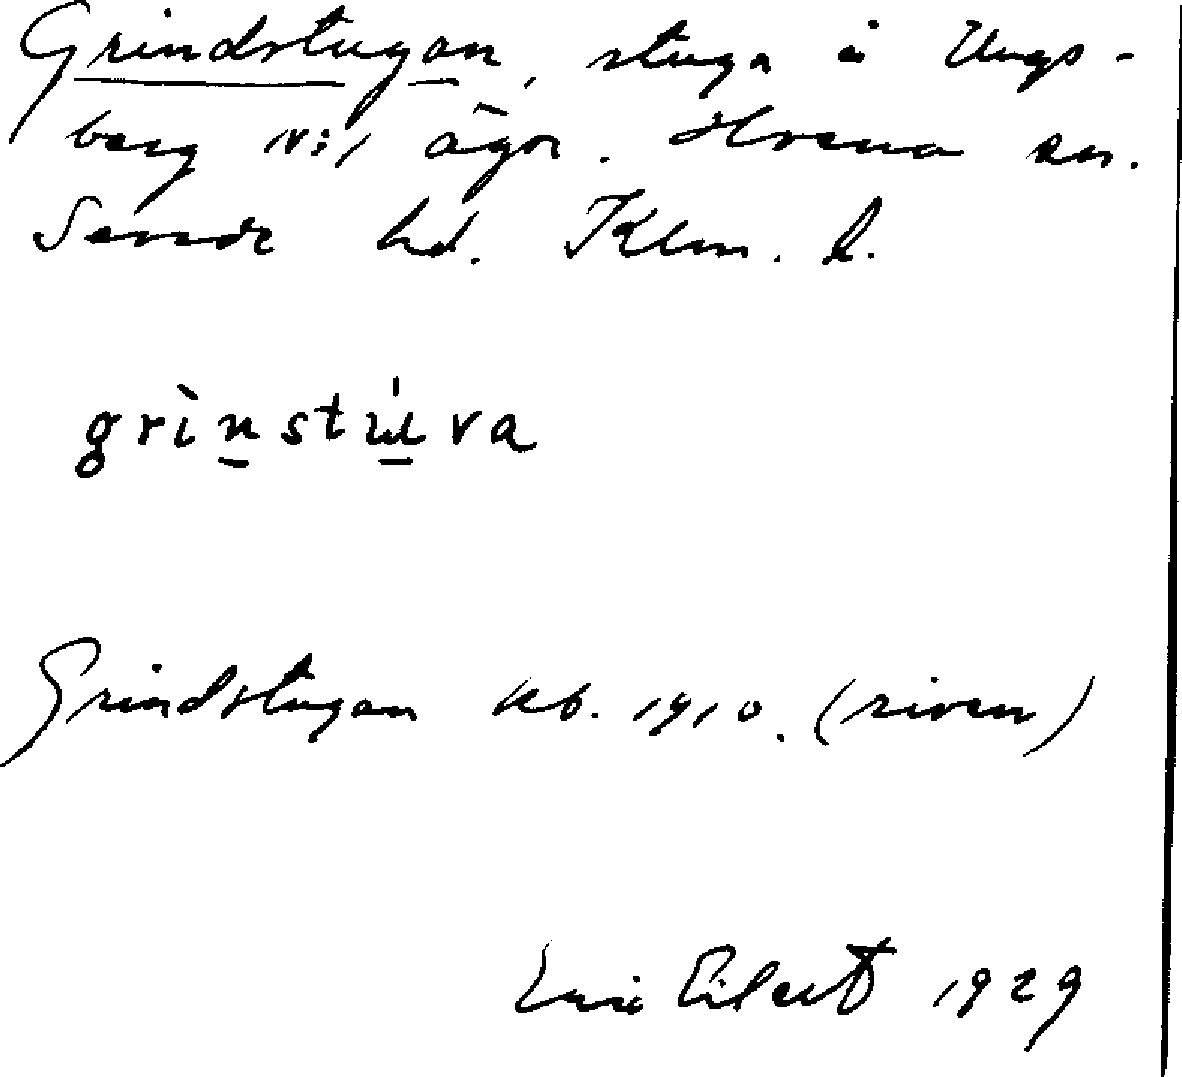 Grindstugan, stuga å Ungs-
berg IV:1 ägor. Hvena sn.
Sevede hd. Klm. l.
grìnstu̍va
Grindstugan kb. 1910. (riven)
Eilert 1929